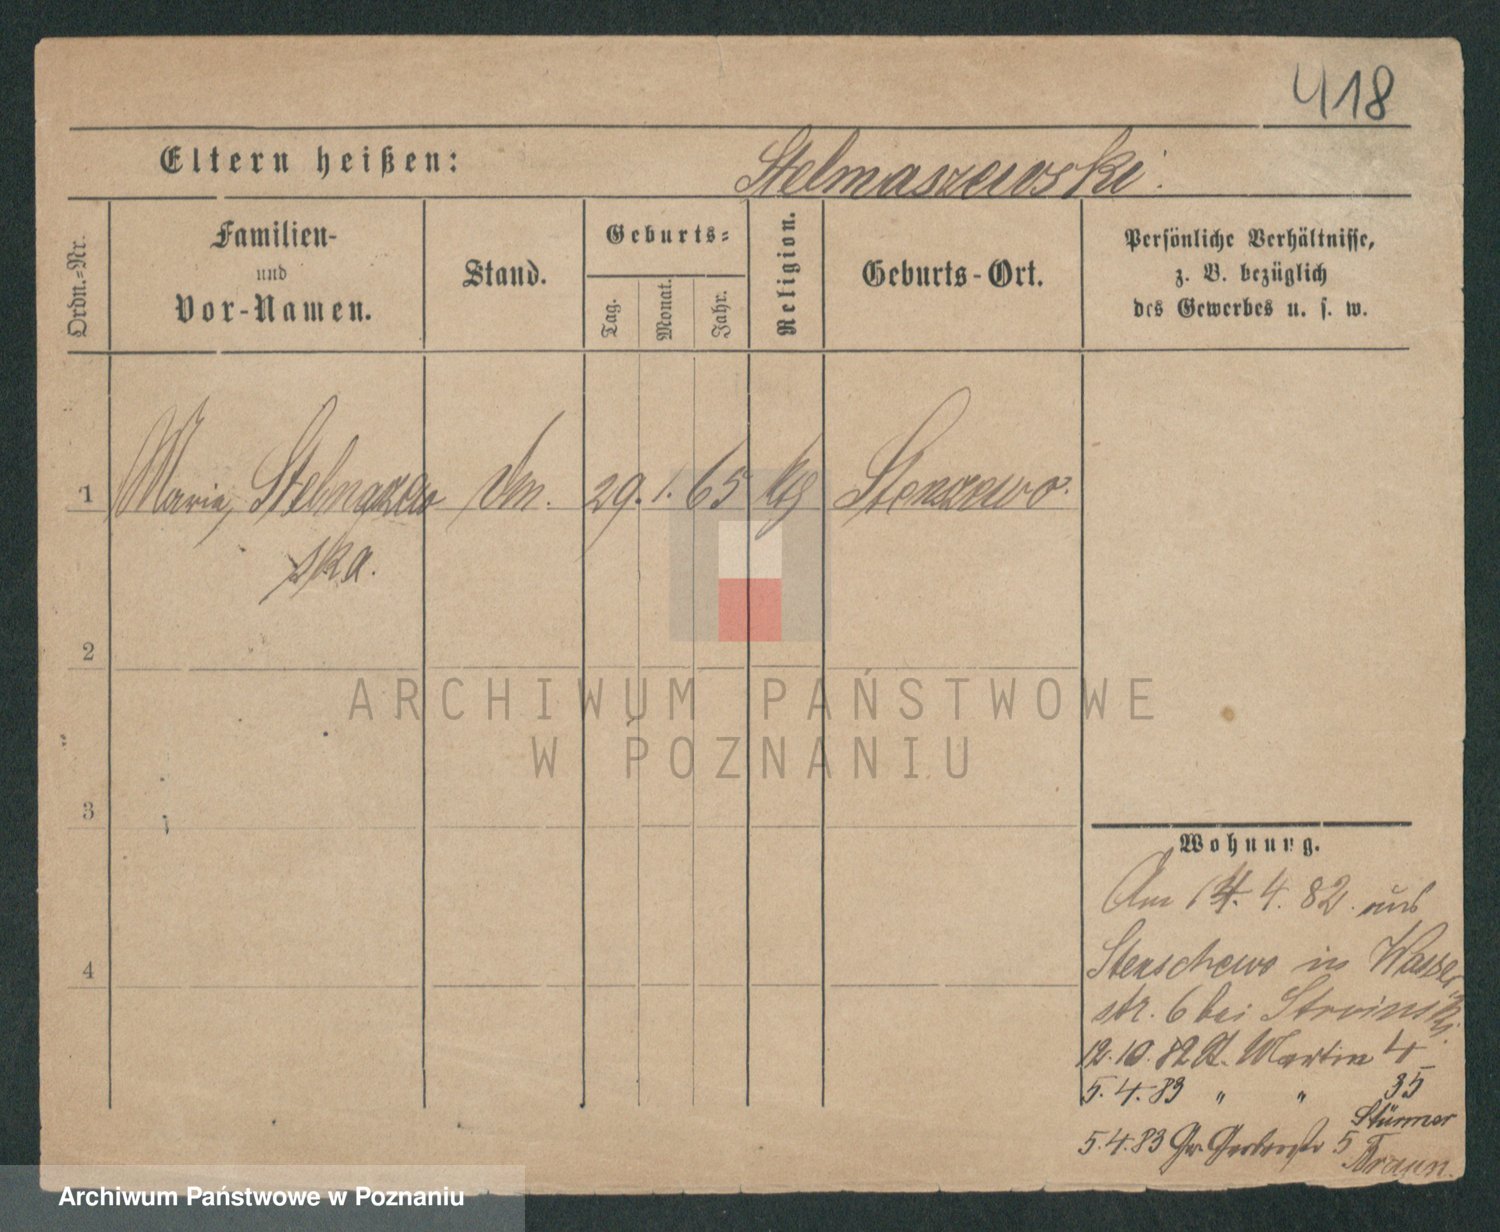 418
Eltern heißen: Stelmaszewski.
Ordn.-Nr.
Familien-
und
Vor-Namen.
Stand.
Geburts-
Tag.
Monat.
Jahr.
Religion.
Geburts-Ort.
Persönliche Verhältnisse,
z. B. bezüglich
des Gewerbes u. s. w.
1 Maria, Stelmaszew 29. 1. 65
ska.
2
3
4
Wohnung.
Am 14. 4. 82. aus
Stenschewo in Wasser
str. 6 bei Stroinski.
12.10.82 St. Martin 4
5.4.83 " " 35
Stürmer
5.4.83 Gr. Gerberstr 5
Braun.
ARCHIWUM PAŃSTWOWE
W POZNANIU
Archiwum Państwowe w Poznaniu